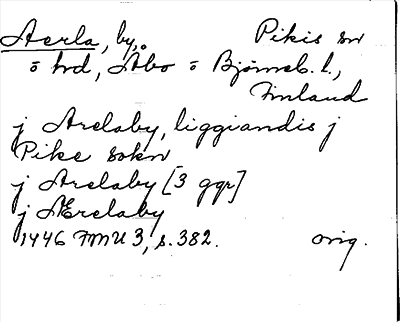 Aerla, by, Pikis sn
o hd, Åbo o Björneb. l.,
Finland
j Arelaby, liggiandis j
Pike sokn
j Arelaby [3 ggr]
j Ærelaby
1446 FMU 3, s. 382. orig.